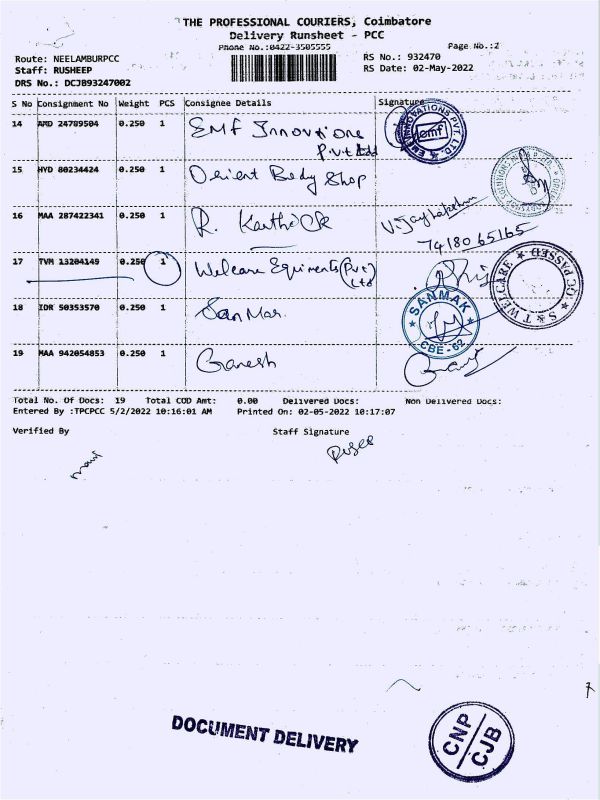 THE PROFESSIONAL COURIERS, Coimbatore
Delivery Runsheet - PCC
Phone No.:0422-3505555
Page No.:2
Route: NEELAMBURPCC
RS No.: 932470
Staff: RUSHEEP
RS Date: 02-May-2022
DRS No.: DCJB93247002
S No Consignment No Weight PCS Consignee Details Signature
14 AMD 24789504 0.250 1 EMF Innovtions
Pvt Ltd
15 HYD 80234424 0.250 1 Orient Body Shop
16 MAA 287422341 0.250 1 R. Karthick
7418065165
17 TVM 13204149 0.250 1 Welcare Equiments (Pvt)
Ltd
18 IDR 50353570 0.250 1 SanMar
19 MAA 942054853 0.250 1 Ganesh
emf
SANMAK
CBE - 62
S&T WELCARE
QC PASSED
Total No. Of Docs: 19 Total COD Amt: 0.00 Delivered Docs: Non Delivered Docs:
Entered By :TPCPCC 5/2/2022 10:16:01 AM Printed On: 02-05-2022 10:17:07
Verified By Staff Signature
DOCUMENT DELIVERY
CNP
CJB